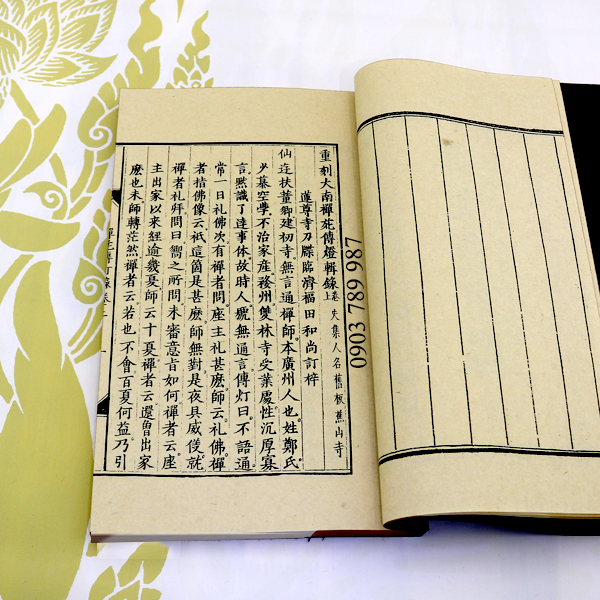 重刻大南禪苑傳燈輯錄卷上 史集人名舊板蕉山寺
蓮尊寺刀牒臨濟福田和尚訂梓
仙迻扶董鄉建初寺無言通禪師本廣州人也姓鄭氏
少慕空學不治家産務州雙林寺受業處性沉厚寡
言黙識了達事休故時人號無通言傳灯曰不語通
常一日礼佛次有禪者問座主礼甚麽師云礼佛禪
者指佛像云祇這箇是甚麽師無對是夜具威儀就
禪者礼拜問曰嚮之所問未審意旨如何禪者云座
主出家以來經逾幾夏師云十夏禪者云還曽出家
麽也未師轉茫然禪者云若也不會百夏何益乃引
0903 789 987